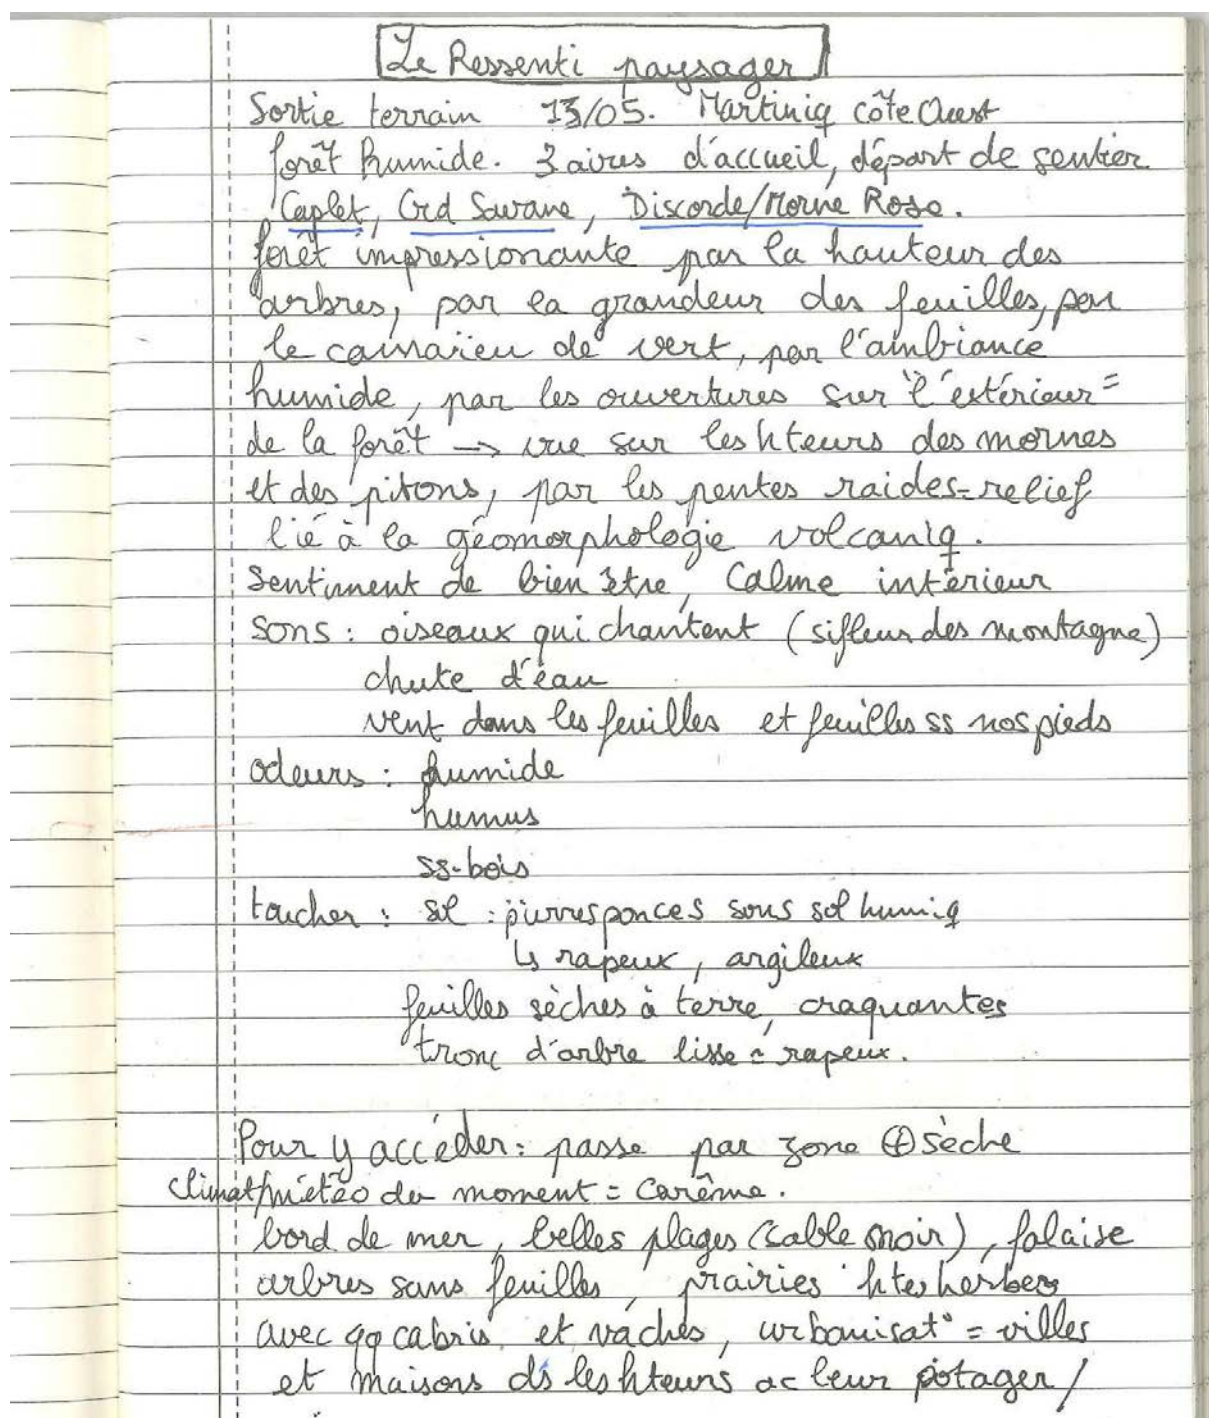 Le Ressenti paysager
Sortie terrain 13/05. Martiniq côte Ouest
forêt humide. 3 aires d'accueil, départ de sentier
Caplet, Grd Savane, Discorde/Morne Rose.
forêt impressionante par la hauteur des
arbres, par la grandeur des feuilles, par
le camaïeu de vert, par l'ambiance
humide, par les ouvertures sur "l'extérieur"
de la forêt → vue sur les hteurs des mornes
et des pitons, par les pentes raides=relief
lié à la géomorphologie volcaniq.
Sentiment de bien être, Calme intérieur
sons : oiseaux qui chantent (sifleur des montagne)
chute d'eau
vent dans les feuilles et feuilles ss nos pieds
odeurs : humide
humus
ss-bois
toucher : sol : pierres ponces sous sol humiq
↳ rapeux, argileux
feuilles sèches à terre, craquantes
tronc d'arbre lisse à rapeux.
Pour y accéder : passe par zone ⊕ sèche
climat/météo du moment = Carême.
bord de mer, belles plages (sable noir), falaise
arbres sans feuilles, prairies htes herbes
avec qq cabris et vaches, urbanisat° = villes
et maisons ds les hteurs ac leur potager/